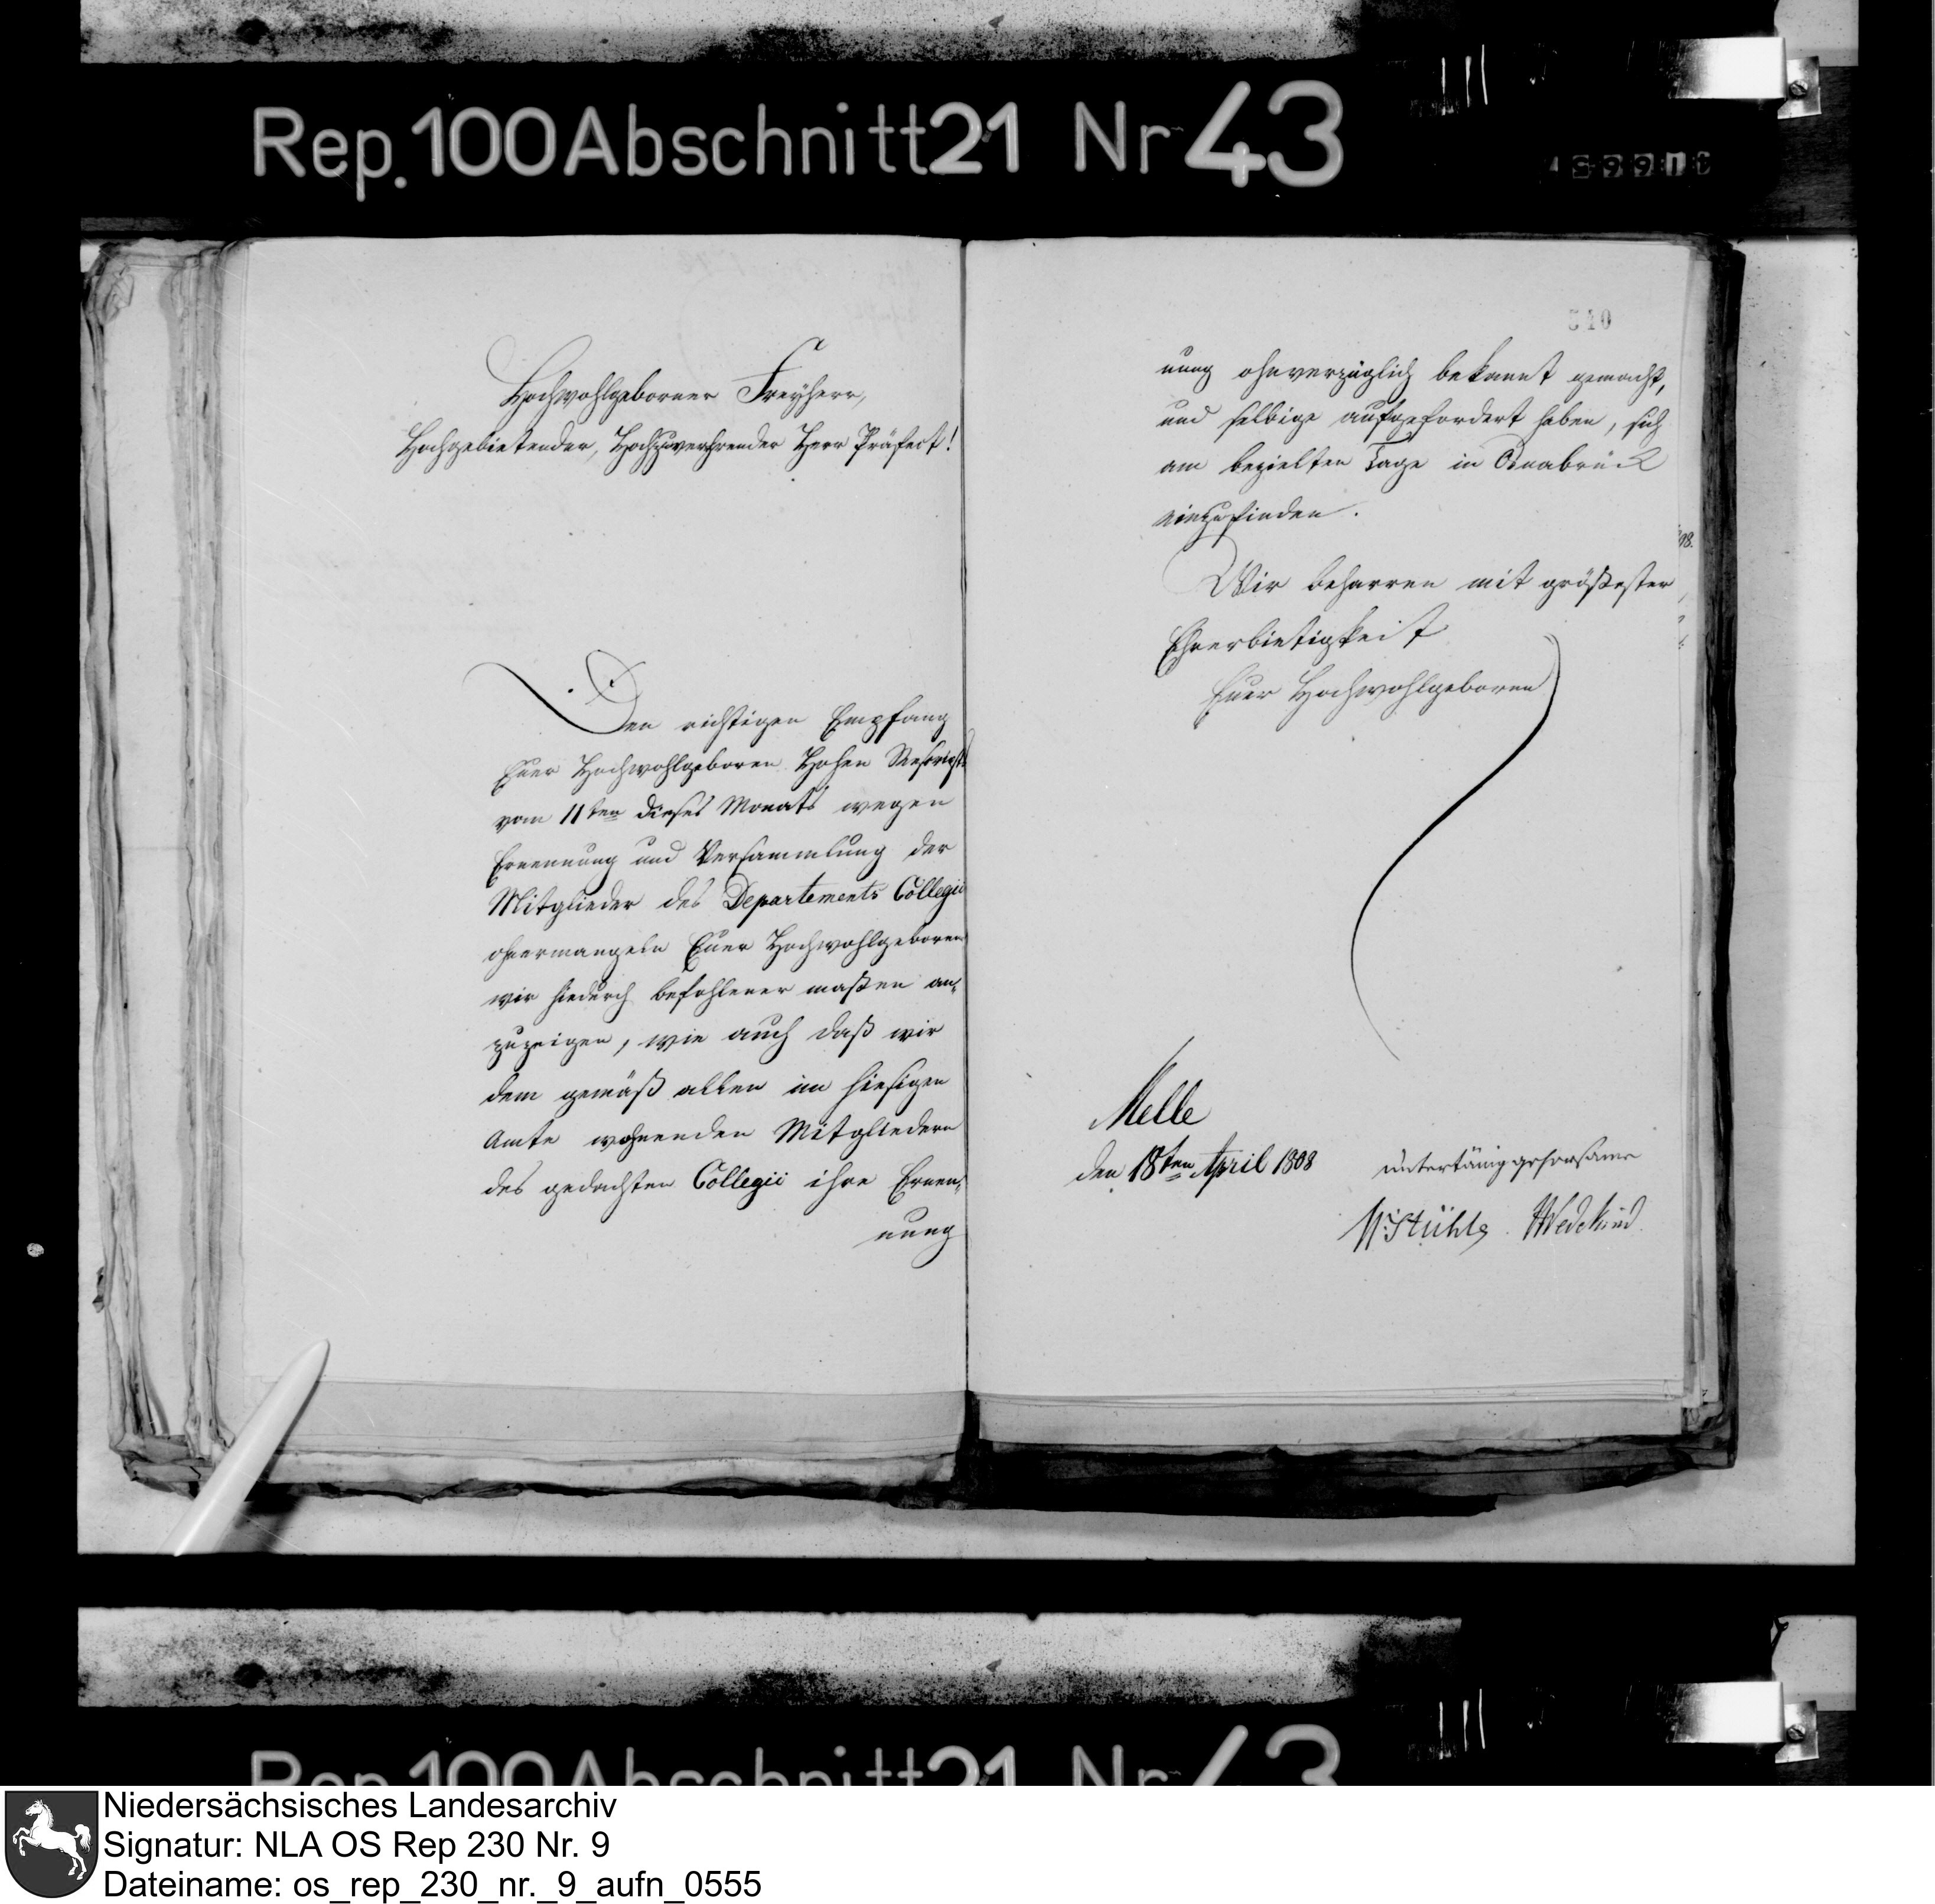 Rep. 100 Abschnitt 21 Nr 43
Hochwohlgeborner Freyherr,
Hochgebietender, Hochzuverehrender Herr Präfect!
Den richtigen Empfang
Euer Hochwohlgeboren Hohen Rescripts
vom 11ten dieses Monats wegen
Ernennung und Versammlung der
Mitglieder des Departements Collegii
ohnermangeln Euer Hochwohlgeboren
wir hiedurch befohlener maßen an-
zuzeigen, wie auch daß wir
dem gemäß allen im hiesigen
Amte wohnenden Mitgliedern
des gedachten Collegii ihre Ernen-
nung
540
nung ohnverzüglich bekannt gemacht,
und selbige aufgefordert haben, sich
am bezielten Tage in Osnabrück
einzufinden.
Wir beharren mit größester
Ehrerbietigkeit
Euer Hochwohlgeboren
Melle
den 18ten April 1808
untertänig gehorsame
Stühle Wedekind
Rep. 100 Abschnitt 21 Nr 43
Niedersächsisches Landesarchiv
Signatur: NLA OS Rep 230 Nr. 9
Dateiname: os_rep_230_nr._9_aufn_0555